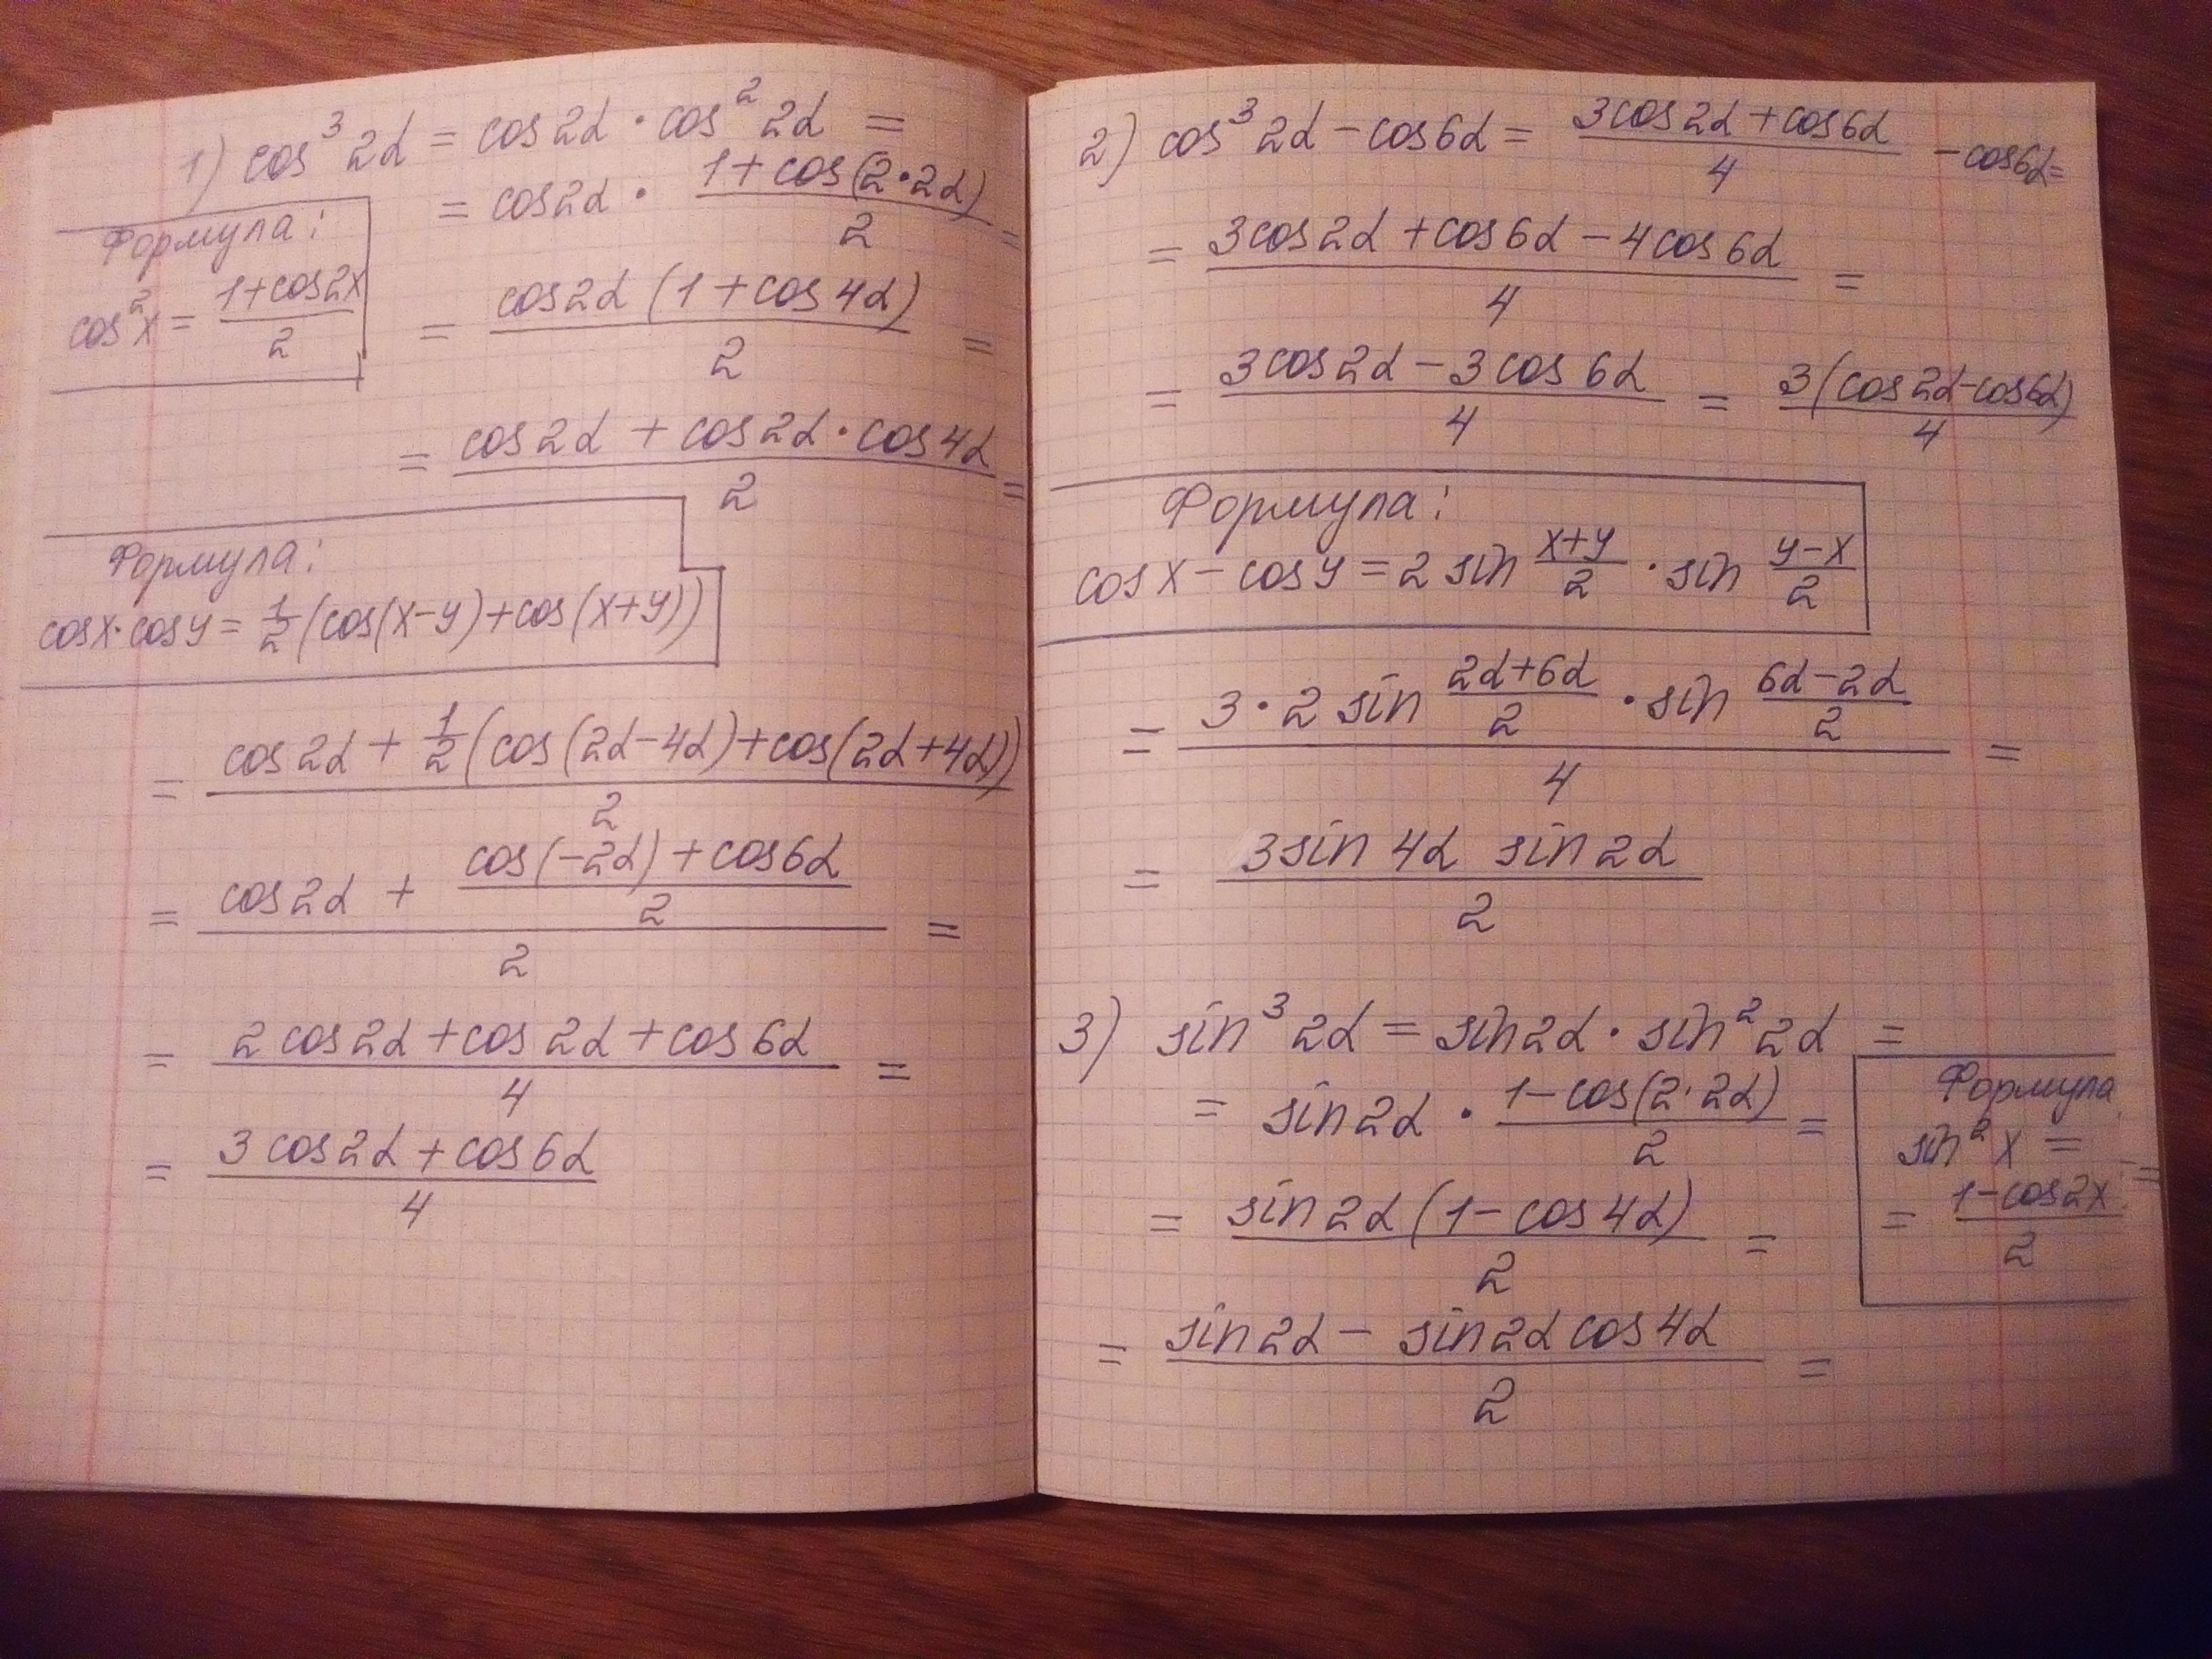 1) cos³ 2α = cos2α · cos² 2α =
= cos2α · (1+cos(2·2α))/2 =
Формула:
cos²x = (1+cos2x)/2
= (cos2α (1+cos4α))/2 =
= (cos2α + cos2α · cos4α)/2 =
Формула:
cosx·cosy = 1/2 (cos(x-y)+cos(x+y))
= (cos2α + 1/2 (cos(2α-4α)+cos(2α+4α)))/2
= (cos2α + (cos(-2α)+cos6α)/2)/2 =
= (2cos2α+cos2α+cos6α)/4 =
= (3cos2α+cos6α)/4
2) cos³ 2α - cos6α = (3cos2α+cos6α)/4 - cos6α =
= (3cos2α+cos6α-4cos6α)/4 =
= (3cos2α-3cos6α)/4 = (3(cos2α-cos6α))/4
Формула:
cosx - cosy = 2 sin (x+y)/2 · sin (y-x)/2
= (3·2 sin (2α+6α)/2 · sin (6α-2α)/2)/4 =
= (3sin4α sin2α)/2
3) sin³ 2α = sin2α · sin² 2α =
= sin2α · (1-cos(2·2α))/2 =
Формула
sin²x =
= (1-cos2x)/2
= (sin2α (1-cos4α))/2 =
= (sin2α - sin2α cos4α)/2 =